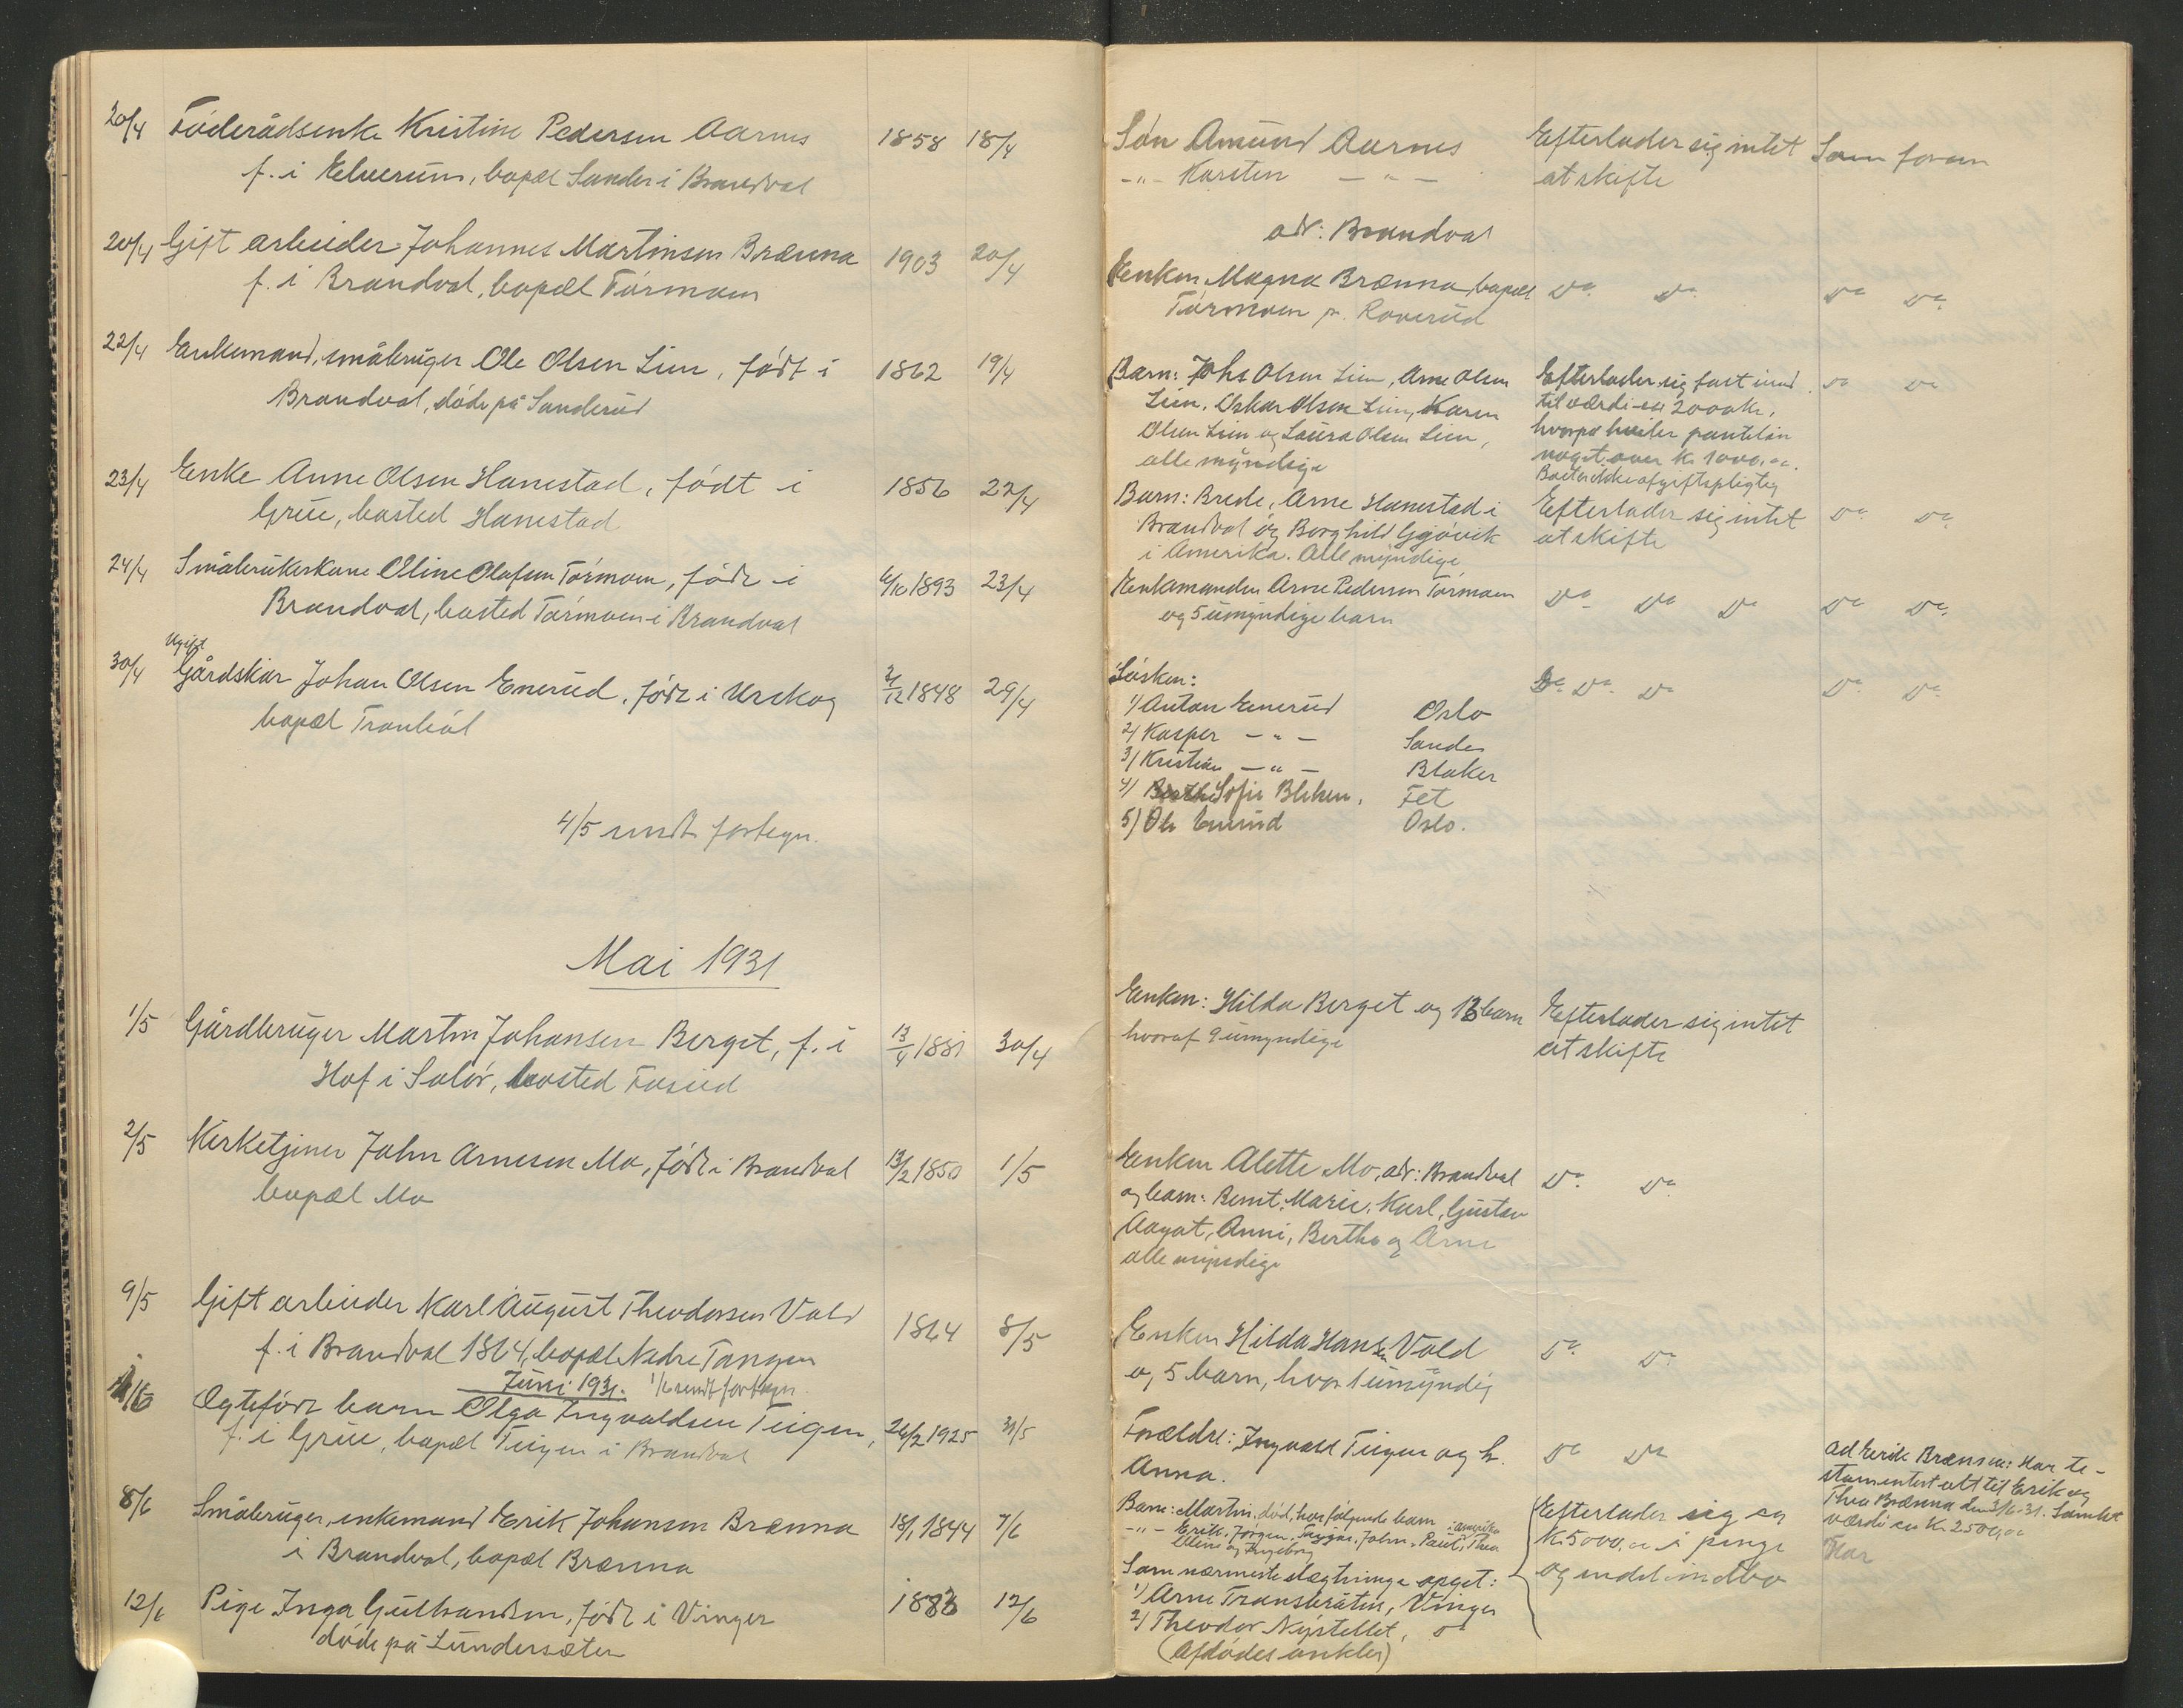 20/4 Föderådsenke Kristine Pedersen Aarnes 1858 18/4
f. i Elverum, bopæl Sander i Brandval
20/4 Gift arbeider Johannes Martinsen Brænna 1903 20/4
f. i Brandval, bopæl Törmoen
22/4 Enkemand, småbruger Ole Olsen Lien, født i 1862 19/4
Brandval, døde på Sanderud
23/4 Enke Anne Olsen Hanestad, født i 1856 22/4
Grue, bosted Hanestad
24/4 Småbrukerkone Oline Olafsen Törmoen, födt i 6/10 1893 23/4
Brandval, bosted Törmoen i Brandval
Ugift
30/4 Gårdskar Johan Olsen Enerud, födt i Urskog 2/12 1848 29/4
bopæl
4/5 sendt fortegn.
Mai 1931
1/5 Gårdbruger Martin Johansen Berget, f. i 13/4 1881 30/4
Hof i Solør, bosted
2/5 Kirketjener John Arnesen Mo, födt i Brandval 13/2 1850 1/5
bopæl Mo
9/5 Gift arbeider Karl August Theodorsen Vold 1864 8/5
f. i Brandval 1864, bopæl Nedre Tangen
Juni 1931. 1/6 sendt fortegn.
Ægtefödt barn Olga Ingvaldsen Teigen, 26/2 1925 31/5
f. i Grue, bopæl Teigen i Brandval
8/6 Småbruger, enkemand Erik Johansen Brænna 18/1 1844 7/6
i Brandval, bopæl Brænna
12/6 Pige Inga Gulbrandsen, födt i Vinger 1883 12/6
döde på Lundersæter
Sön Amund Aarnes Efterlader sig intet Som foran
-"- Karsten -"- at skifte
adr: Brandval
Enken Magna Brænna, bopæl Do. Do. Do Do.
Törmoen p. Roverud
Barn: Johs Olsen Lien, Arne Olsen Efterlader sig fast eiend. Do Do
Lien, Oskar Olsen Lien, Karen til værdi ca 2000 kr,
Olsen Lien og Laura Olsen Lien, hvorpå hviler pantelån
alle myndige noget over kr. 1000,00.
Boet ikke afgiftspligtig
Barn: Brede, Arne Hanestad i Efterlader sig intet Do Do.
Brandval og Borghild Gjøvik at skifte
i Amerika. Alle myndige
Enkemanden Arne Pedersen Törmoen Do Do Do Do Do.
og 5 umyndige barn
Søsken: Do. Do. Do Do. Do.
1) Anton Enerud Oslo
2) Kasper -"- Sander
3) Kristian -"- Blaker
4) Sofie Fet
5) Ole Enerud Oslo.
Enken: Hilda Berget og 13 barn Efterlader sig intet
hvoraf 9 umyndige at skifte
Enken Alette Mo, adr: Brandval Do. Do.
og barn: Bernt, Marie, Karl, Gustav
Aagot, Anni, Berthe og Arne
alle myndige
Enken Hilda Hansen Vold Do. Do.
og 5 barn, hvor 1 umyndig
Forældre: Ingvald Teigen og h. Do Do
Anna.
ad Erik Brænna: Har te-
stamentert alt til Erik og
Thea Brænna den 3/6-31. Samlet
værdi ca kr. 2500,00
Barn: Martin, död, har følgende barn i Amerika Efterlader sig ca
-"- Erik, Jørgen, John, Paul, Thea kr. 5000,00 i penge
Ellen og Ingeborg og endel indbo
Som nærmeste slægtninge opget:
1) Arne Vinger
2) Theodor Do
(Afdödes onkler)